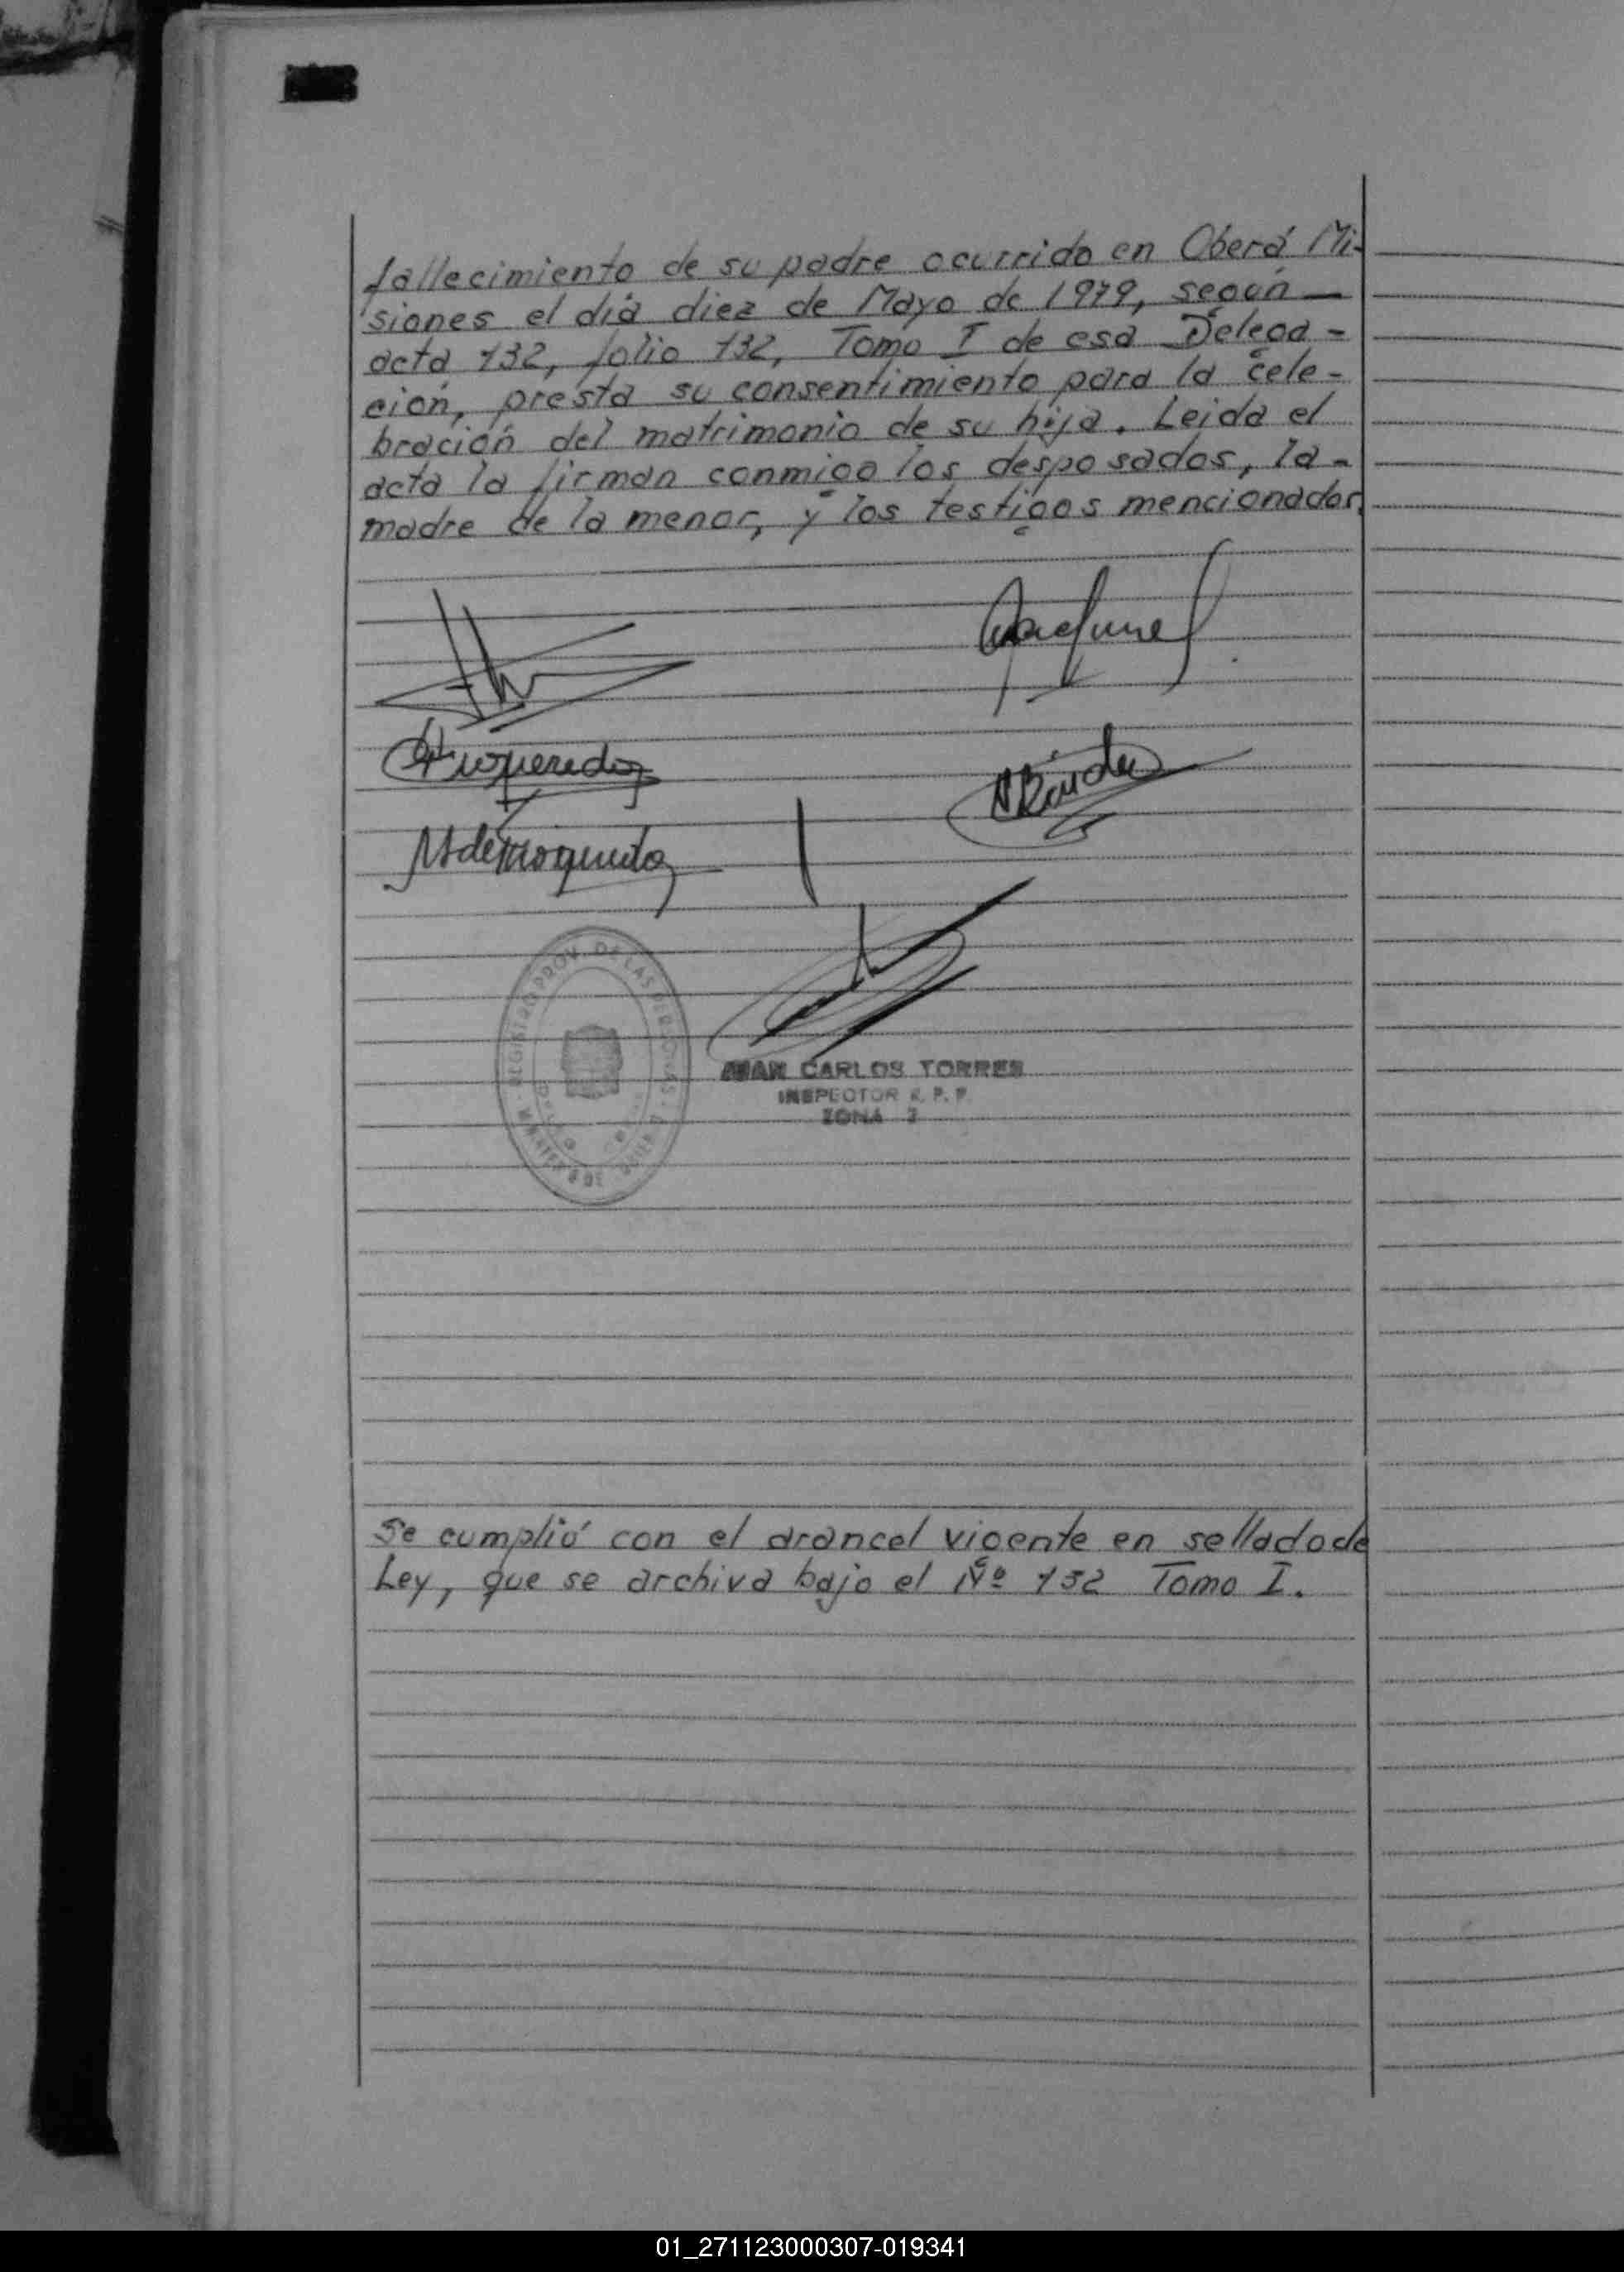 fallecimiento de su padre ocurrido en Oberá Mi-
siones el día diez de Mayo de 1979, según —
acta 132, folio 132, Tomo I de esa Delega-
ción, presta su consentimiento para la cele-
bración del matrimonio de su hija. Leida el
acta la firman conmigo los desposados, la-
madre de la menor, y los testigos mencionados.
JUAN CARLOS TORRES
INSPECTOR R. P. P.
ZONA 2
REGISTRO PROV. DE LAS PERSONAS
Se cumplió con el arancel vigente en sellado de
Ley, que se archiva bajo el Nº 132 Tomo I.
01_271123000307-019341